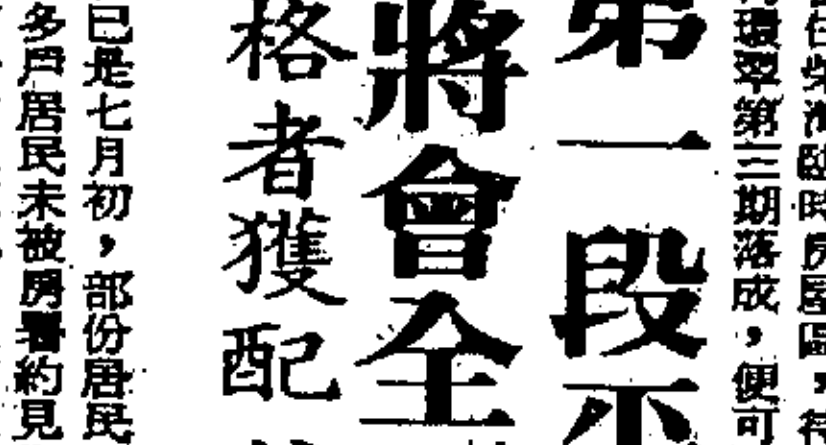 住柴灣臨時房屋區，待
環翠第三期落成，便可
第一段
將會全
格者獲配
已是七月初，部份居民
多戶居民未被房署約見